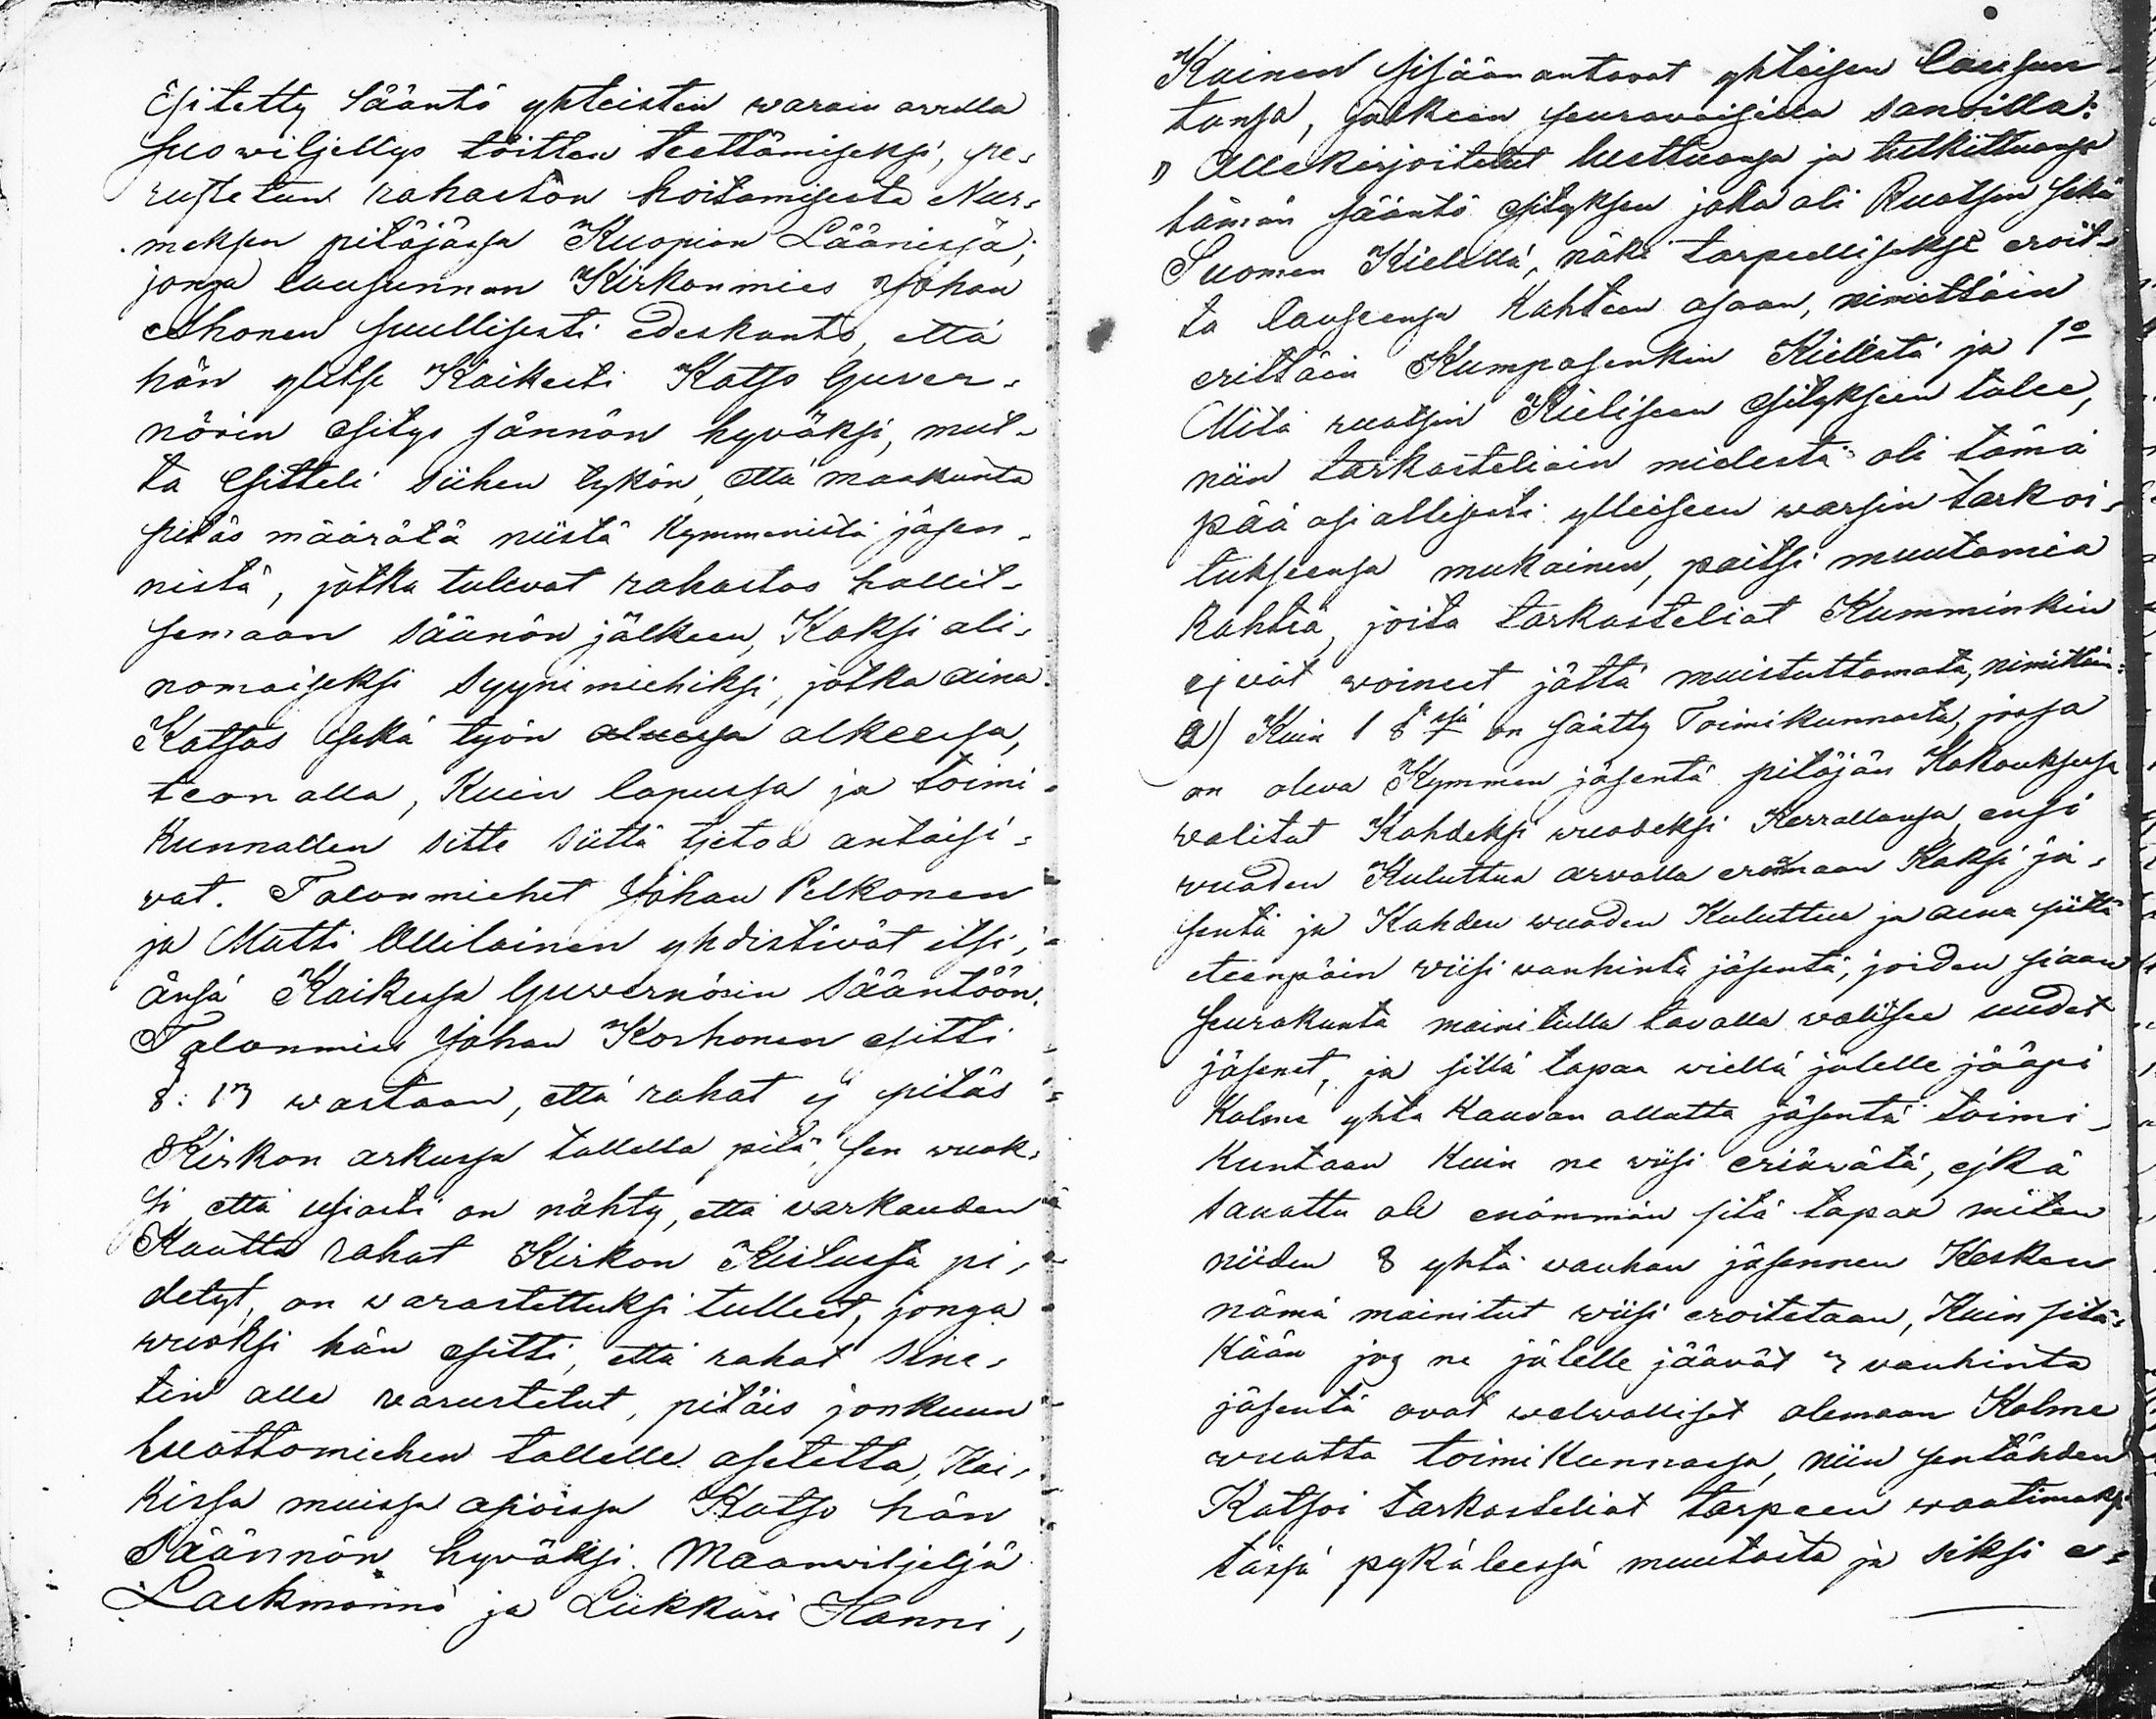 Esitetty Sääntö yhteisten warain avulla
suo wiljellys töitten teettämiseksi, pe-
rustetun rahaston hoitamisesta Nur-
meksen pitäjäsä Kuopion Läänissä;
jonga lausunnon Kirkonmies Johan
Ahonen suullisesti edeskanto, että
hän ylitse Kaikesti Katso Guver-
nörin esitys sännön hyväksi, mut-
ta Esitteli siihen lykön, että maakunta
pitäs määrätä niistä Kymmenistä jäsen-
nistä, jotka tulevat rahastos hallit-
semaan säänön jälkeen, Kaksi ali-
nomaiseksi syynimiehiksi, jotka aina
Katsos sekä työn alkeesa,
teon alla, Kuin lopussa ja toimi-
Kunnallen sitte siittä tietoa antaisi-
vat. Talonmiehet Johan Pelkonen
ja Matti Ollilainen yhdistivät itsi-
änsä Kaikessa Guvernörin Sääntöön.
Talonmies Johan Korhonen esitti
§: 13 wastaan, että rahat ej pitäs
Kirkon arkussa tallella pitä, sen wuok-
si, että usiasti on nähty, että varkauden
Kautta rahat Kirkon Kistussa pi-
detyt, on warastettuksi tulleet, jonga
wuoksi hän esitti, että rahat sine-
tin alle varustetut, pitäis jonkuun
luottomiehen tallelle asetetta, Kai-
kissa muissa asioissa Katso hän
Säännön hyväksi. Maanwiljeljä
Lackmanni ja Lukkari Hanni,
Kainen sisäänantavat yhteisen lausun-
tonsa, jälkeen seuravaisilla sanoilla:
„Allekirjoitetut luettuansa ja tutkittuansa
tämän sääntö esityksen joka oli Ruotsin sekä
Suomen Kielellä, näki tarpeelliseksi eroit-
ta lauseensa Kahteen osaan, nimittäin
erittäin Kumpasenkin Kielestä ja 1o
Mitä ruotsin Kieliseen esitykseen tulee,
niin tarkasteliain mielestä oli tämä
pää asiallisesti ylleiseen warsin tarkoi-
tukseensa mukainen, paitsi muutamia
Kohtia, joita tarkasteliat Kumminkin
ejvät woineet jättä muistuttamata, nimittäin:
a) Kuin 1 §ssä on säätty Toimikunnasta, jossa
on oleva Kymmen jäsentä pitäjän Kokouksessa
valitut Kahdeksi wuodeksi Kerrallansa, ensi
wuoden Kuluttua arvalla eroamaan Kaksi jä-
sentä ja Kahden wuoden Kuluttua ja aina siittä
eteenpäin wiisi vanhinta jäsentä, joiden siaan
seurakunta mainitulla tavalla valitsee uudet
jäsenet, ja sillä tapaa wiellä jälelle jääpi
Kolme yhtä Kauvan ollutta jäsentä toimi-
Kuntaan Kuin ne wiisi eriäwätä, ejkä
sanottu ole enämmän sitä tapaa miten
niiden 8 yhtä vanhan jäsennen Kesken
nämä mainitut wiisi eroitetaan, Kuin sitä-
Kään jos ne jälelle jäävät 3 vanhinta
jäsentä ovat welwolliset olemaan Kolme
wuotta toimikunnassa, niin sentähden
Katsoi tarkasteliat tarpeen waatimaksi
tässä pykäleessä muutosta ja siksi e-